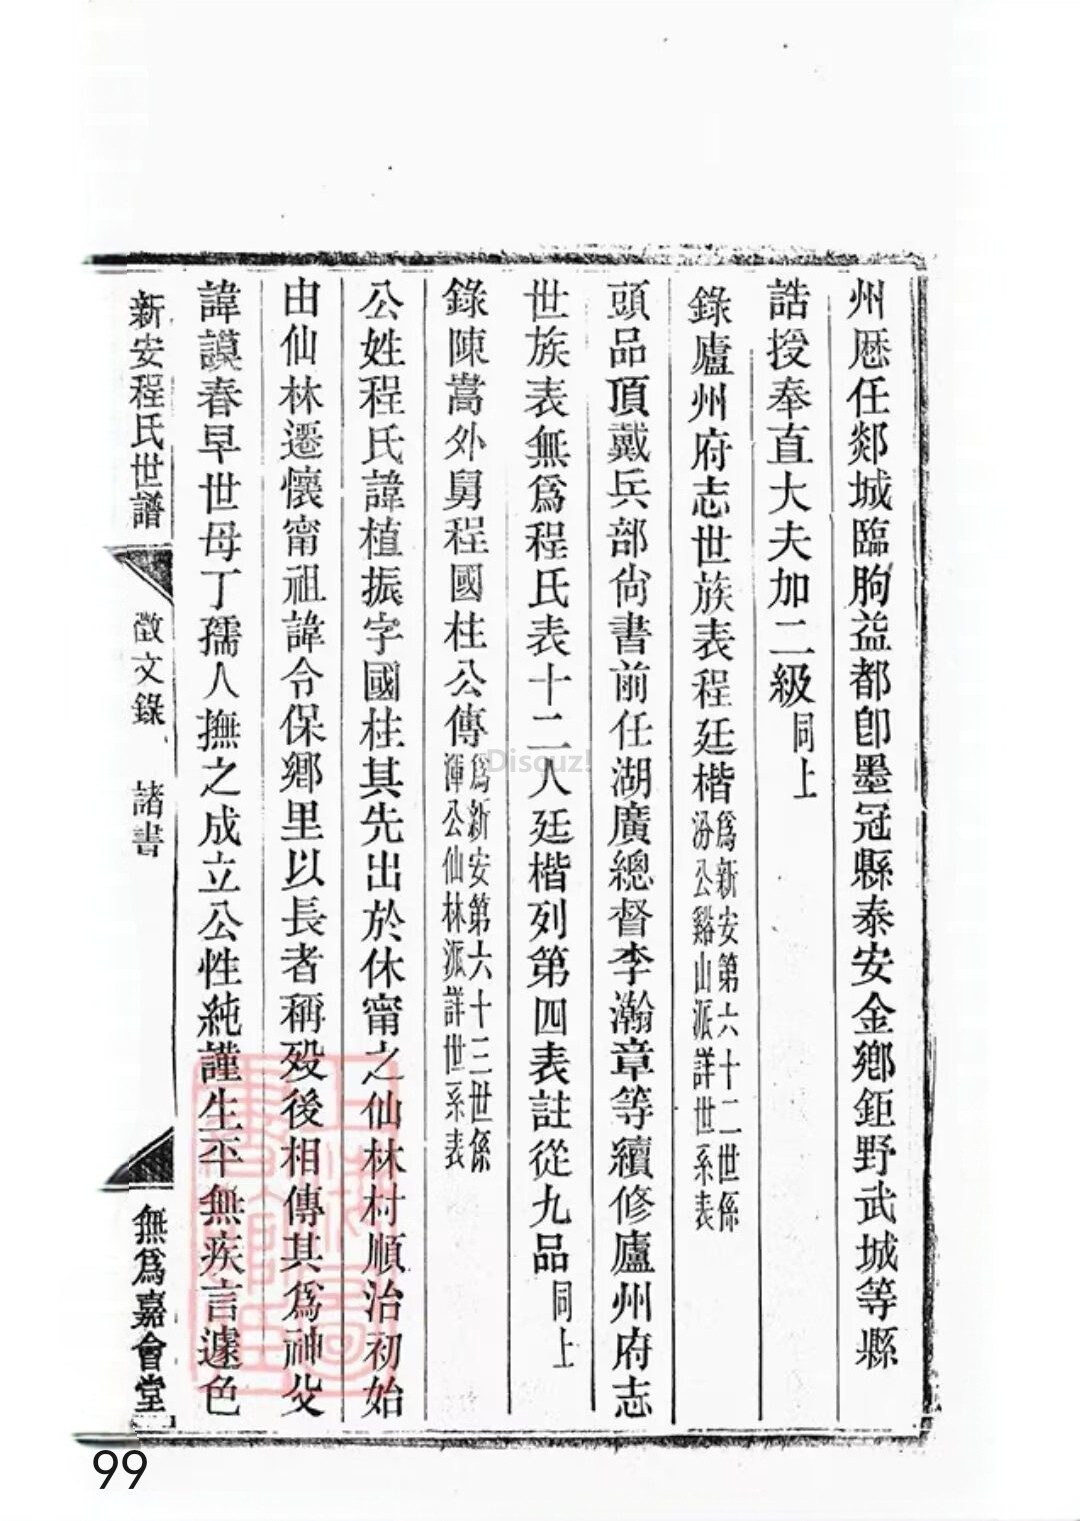 州歴任郯城臨朐益都卽墨冠縣泰安金鄕鉅野武城等縣
誥授奉直大夫加二級同上
錄廬州府志世族表程廷楷爲新安第六十二世係
汾公谿山派詳世系表
頭品頂戴兵部尙書前任湖廣總督李瀚章等續修廬州府志
世族表無爲程氏表十二人廷楷列第四表註從九品同上
錄陳嵩外舅程國柱公傳爲新安第六十三世係
渾公仙林派詳世系表
公姓程氏諱植振字國柱其先出於休甯之仙林村順治初始
由仙林遷懷甯祖諱令保鄕里以長者稱歿後相傳其爲神父
諱謨春早世母丁孺人撫之成立公性純謹生平無疾言遽色
新安程氏世譜 徵文錄 諸書 無爲嘉會堂
99
Discuz!